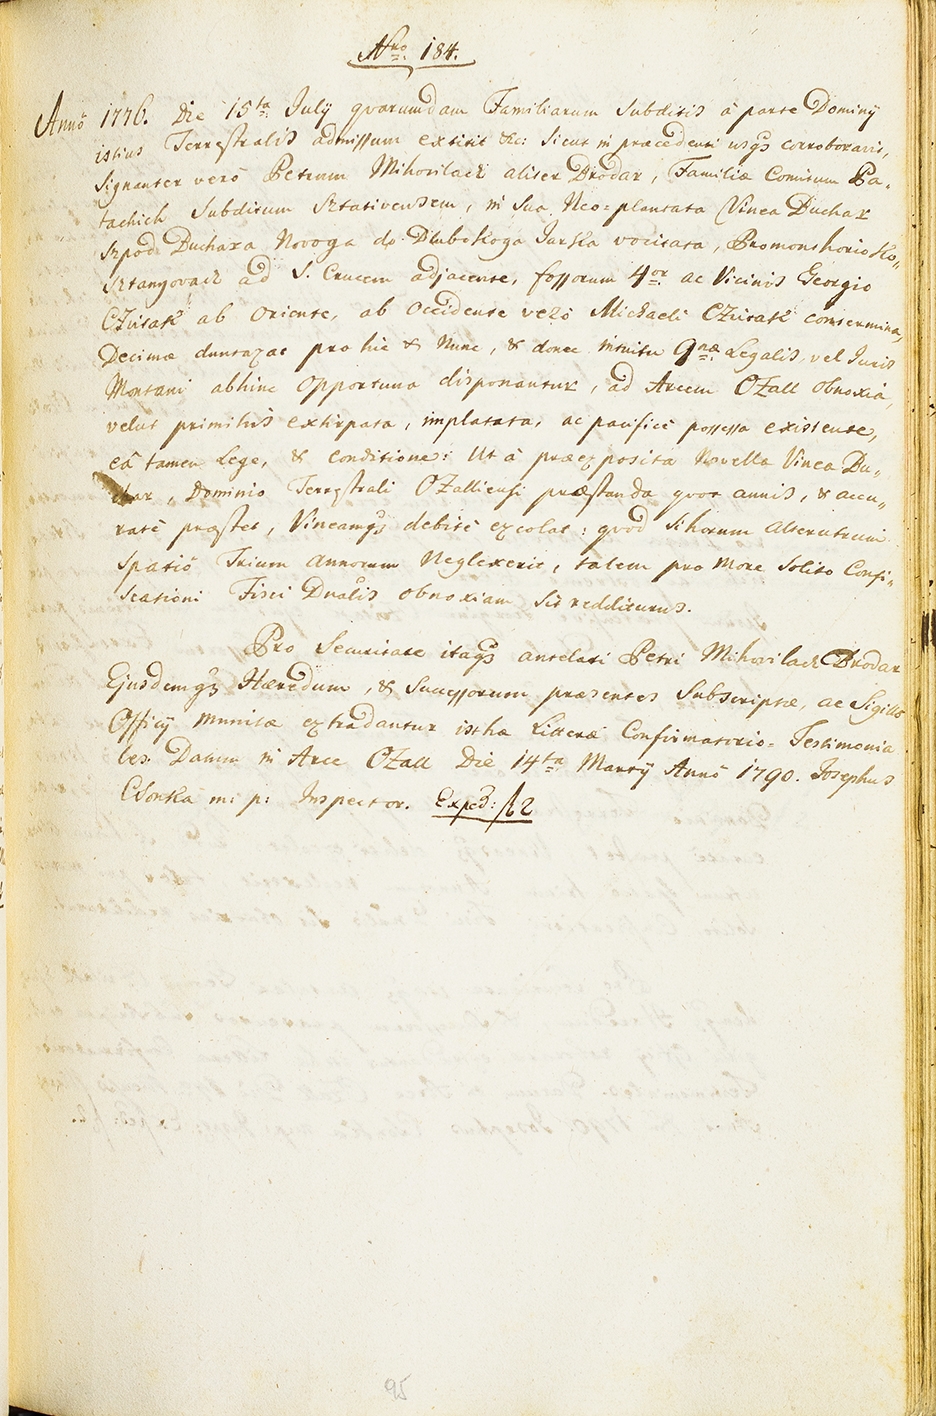 Nro 184.
Anno 1776. Die 15ta July quorumdam Familiarum Subditis à parte Dominy
istius Terrestralis admissum extitit &c: Sicut in praecedenti usqs corroboravit,
Signanter verò Petrum Mihorilach aliter Drodar, Familiae Comitum Pa-
tachich Subditum Sztativensem, in Sua Neo-plantata Vinea Duchar
Szpod Duchara Novoga do Dlubokoga Jarka vocitata, Promonthorio Ko-
Sztanyovach ad S. Crucem adjacente, fossorum 4or ac Vicinis Georgio
CZusak ab oriente, ab occidente verò Michaeli CZusak contermina,
Decimae duntaxat pro hic & Nunc, & donec intuitu 9nae Legalis, vel Juris
Montani abhinc opportuna disponantur, ad Arcem OZall obnoxia,
velut primitus extirpata, implatata, ac pacificè possessa existente,
eâ tamen Lege, & conditione: Ut à praeexposita Novella Vinea Du-
char, Dominio Terrestrali OZalliensi praestanda quot annis, & accu-
ratè praestet, Vineamqs debitè excolat: quòd si horum alterutrum
Spatiô Trium Annorum Neglexerit, talem pro More Solito Confi-
scationi Fisci Dnalis obnoxiam Sit redditurus.
Pro Securitate itaqs antelati Petri Mihorilach Drodar
Ejusdemqs Haeredum, & Successorum praesentes Subscriptae, ac Sigillo
Officy munitae extradantur isthae Litterae Confirmatorio-Testimonia
les. Datum in Arce OZall Die 14ta Marty Annô 1790. Josephus
CSonka m: p: Inspector. Exped:
95